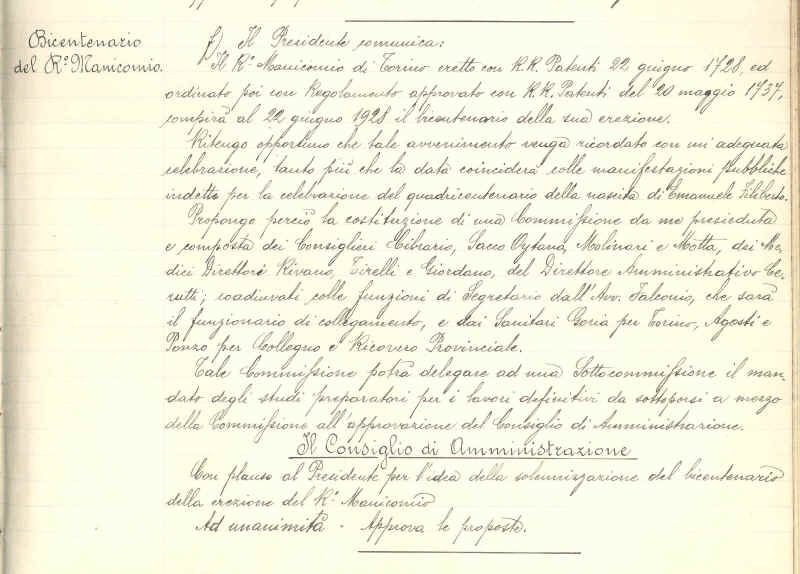 Bicentenario
del R.º Manicomio.
f) Il Presidente comunica:
Il R.º Manicomio di Torino eretto con R.R. Patenti 22 giugno 1728, ed
ordinato poi con Regolamento approvato con R.R. Patenti del 20 maggio 1737,
compirà al 22 giugno 1928 il bicentenario della sua erezione.
Ritengo opportuno che tale avvenimento venga ricordato con un'adeguata
celebrazione, tanto più che la data coinciderà colle manifestazioni pubbliche
indette per la celebrazione del quadricentenario della nascita di Emanuele Filiberto.
Propongo perciò la costituzione di una Commissione da me presieduta
e composta dei Consiglieri Cibrario, Sacco Oytana, Molinari e Motta, dei Me-
dici Direttori Rivano, Tirelli e Giordano, del Direttore Amministrativo Ce-
rutti; coadiuvati colle funzioni di Segretario dall'Avv. Falconio, che sarà
il funzionario di collegamento, e dai Sanitari Goria per Torino, Agosti e
Ponzo per Collegno e Ricovero Provinciale.
Tale Commissione potrà delegare ad una Sottocommissione il man-
dato degli studi preparatori per i lavori definitivi da sottoporsi a mezzo
della Commissione all'approvazione del Consiglio di Amministrazione.
Il Consiglio di Amministrazione
Con plauso al Presidente per l'idea della solennizzazione del bicentenario
della erezione del R.º Manicomio
Ad unanimità - Approva le proposte.